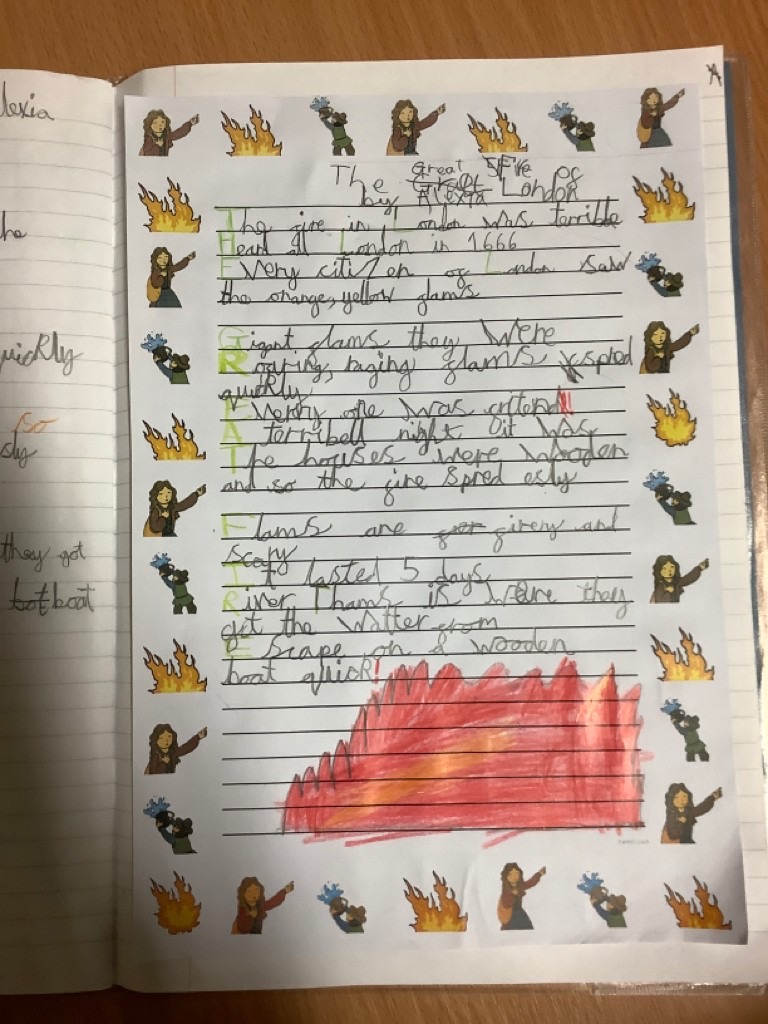 lexia
he
uickly
so
sly
they got
bot boat
A
The Great Fire of
by Alexia London
The fire in London was terrible
Heard all London in 1666
Every citizen of London saw
the orange, yellow flams
Gigant flams they were
Roaring, raging flams spred
quickly
Everry one was
A terribell night it was
The houses were wooden
and so the fire spred esly
Flams are firery and
scary
It lasted 5 days
River Thams is weure they
got the watter from
Escape on a wooden
boat quick!